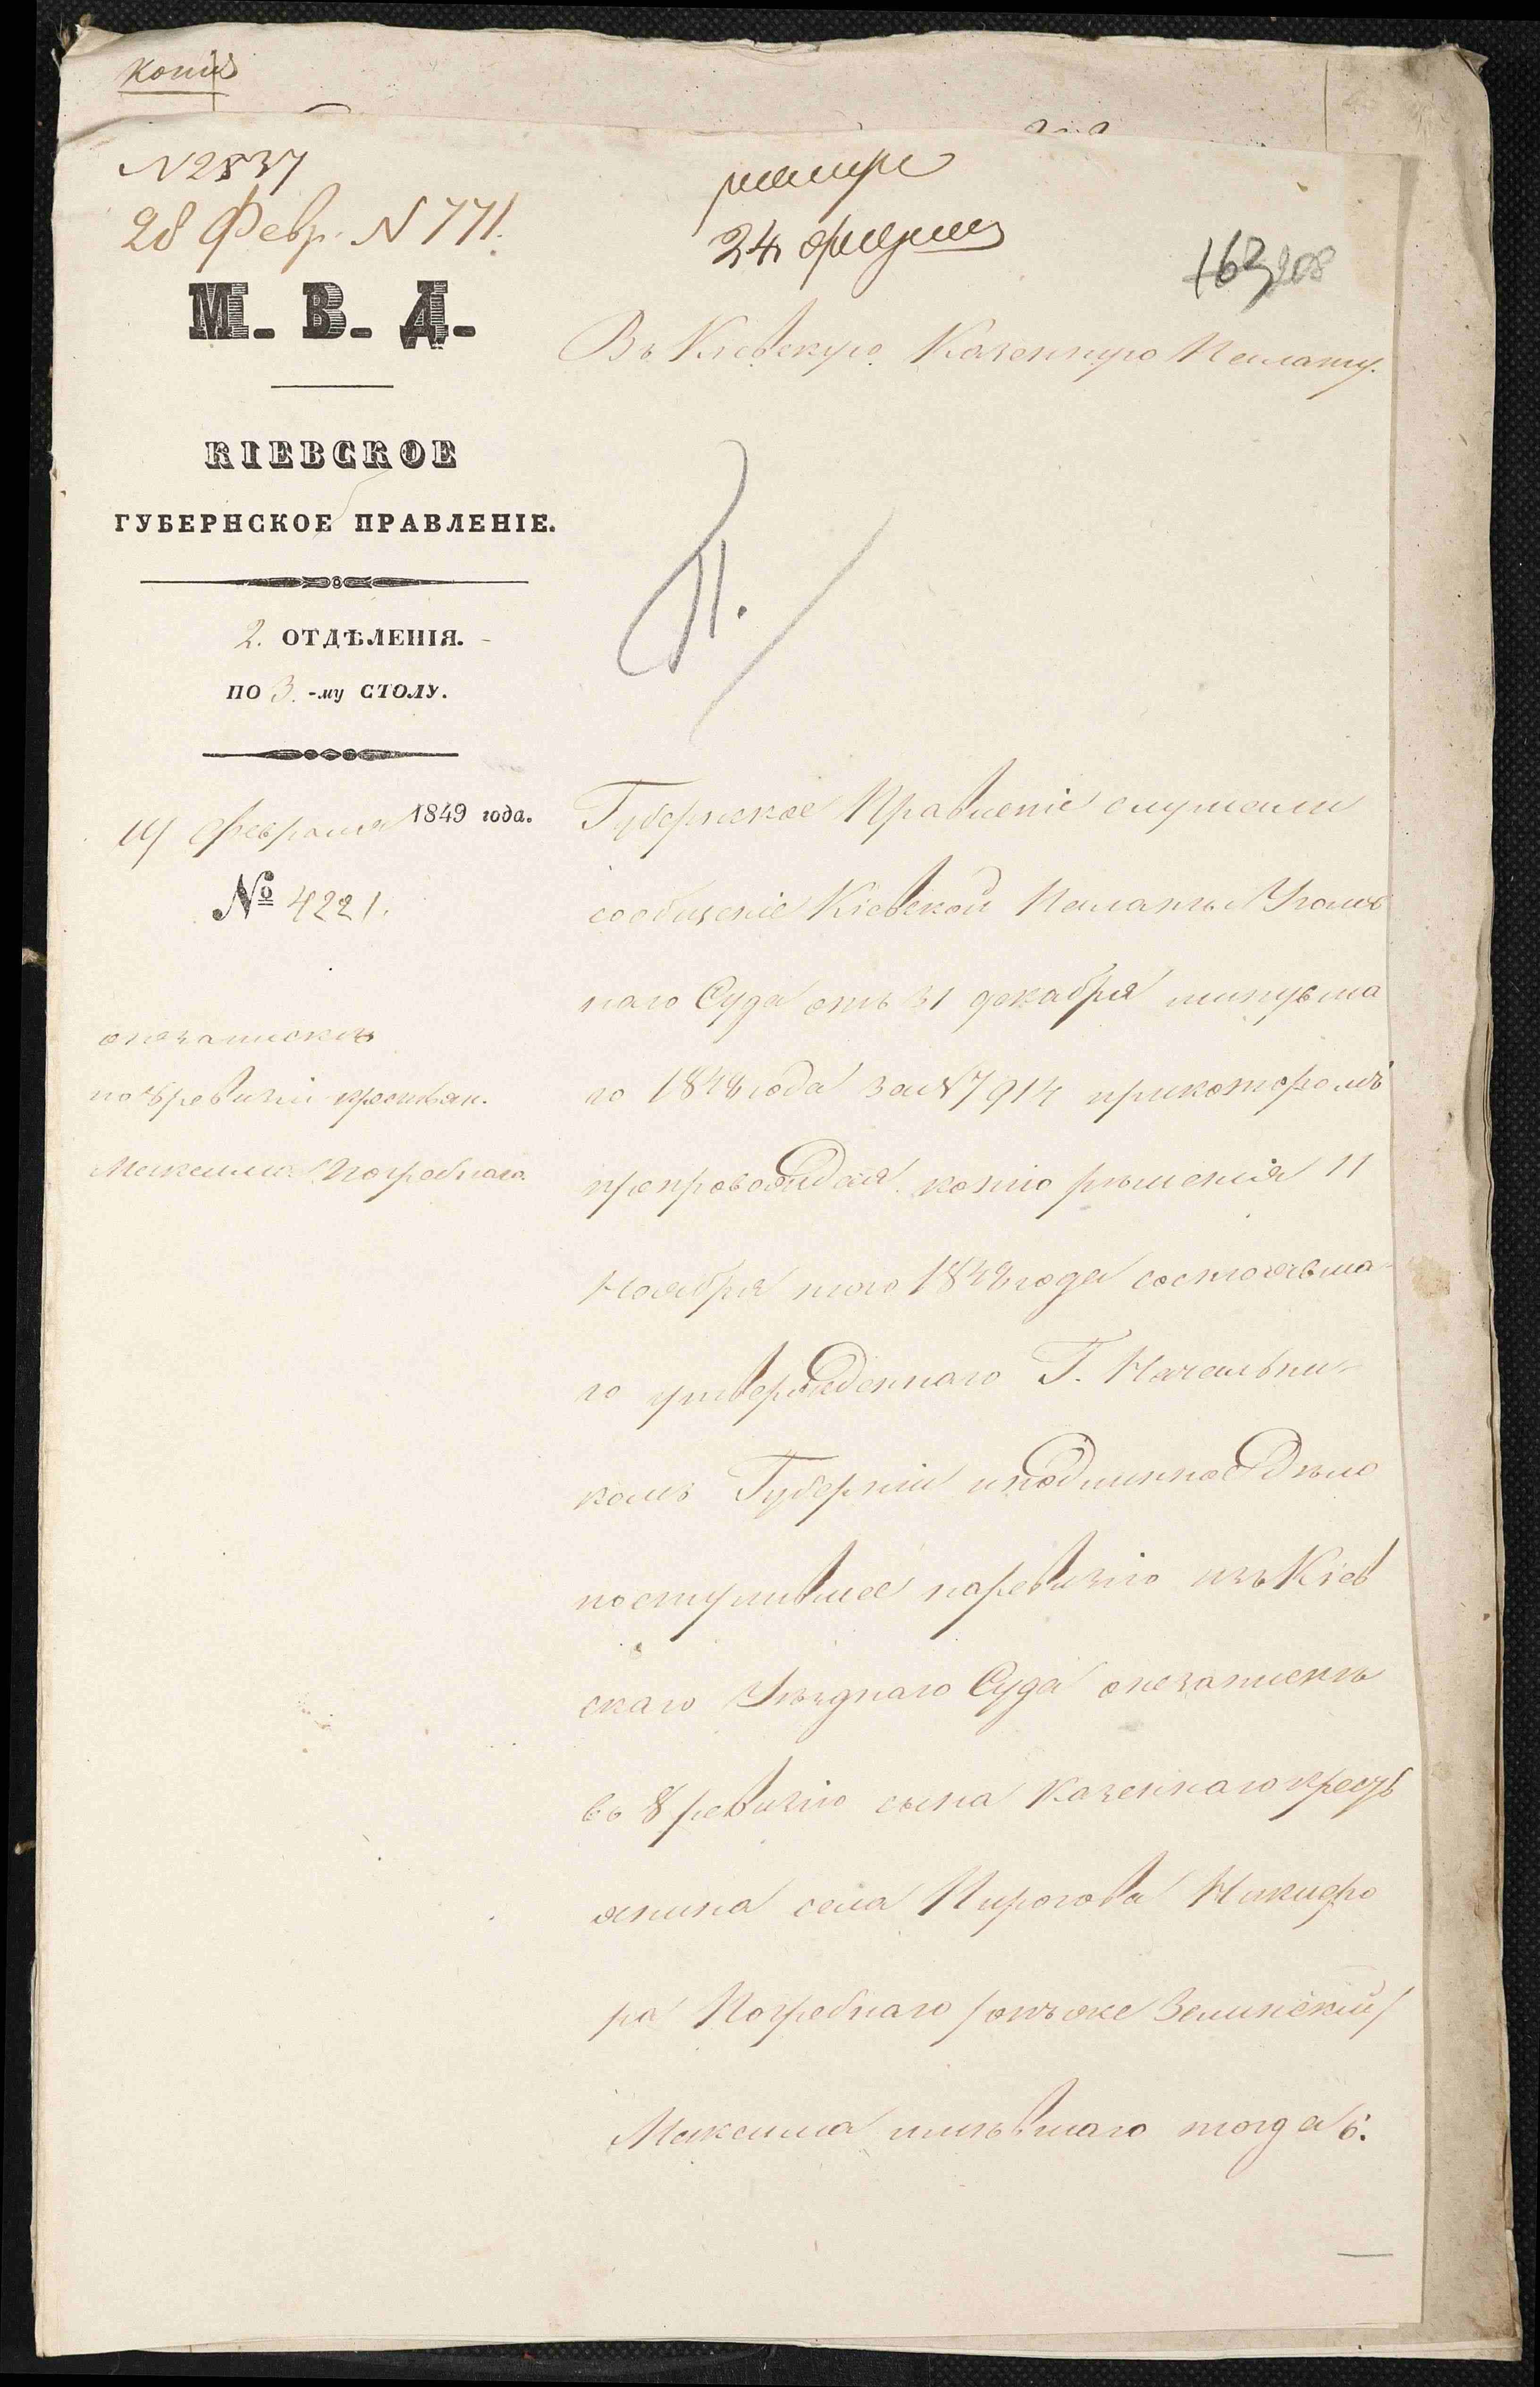 копія
N 2837
28 Февр. N 771.
24 февраля
163 208
М. В. Д.
КІЕВСКОЕ
ГУБЕРНСКОЕ ПРАВЛЕНІЕ.
2. ОТДѢЛЕНІЯ.
ПО 3. -му СТОЛУ.
19 февраля 1849 года.
№ 4221.
онезапискѣ
по 8 ревизіи крестьян.
Максима Погребнаго.
Въ Кіевскую Казенную Палату.
П.
Губернское Правленіе слушали
сообщеніе Кіевской Палаты Уголов
наго Суда отъ 31 декабря минувша
го 1848 года за N 7914 прикоторомъ
препровождая копію рѣшенія 11
Ноября того 1848 года состоявша-
го утвержденнаго Г. Начальни-
комъ Губерніи иподлинное Дѣло
поступившее наревизію изъ Кіев
скаго Уѣзднаго Суда онезапискѣ
въ 8 ревизію сына Казеннаго кресть
янина села Пирогова Никифо
ра Погребнаго /онъ же Зелинскій/
Максима имѣвшаго тогда 6.